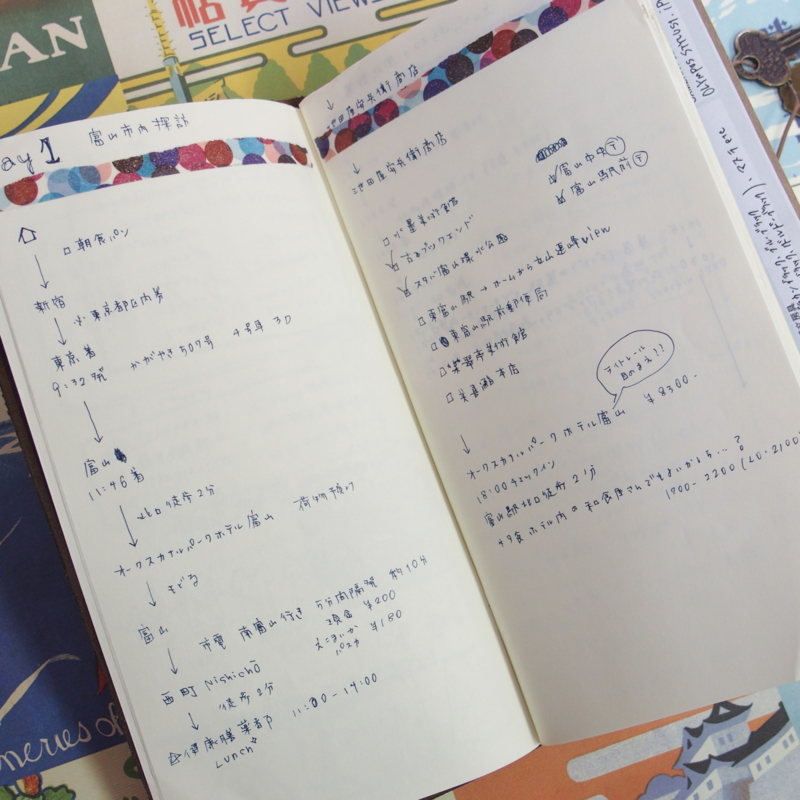 AN
SELECT VIEWS
ay 1 富山市内探訪
□ 朝食パン
新宿
東京都区内券
東京着
9:32発 かがやき507号 4号車 3D
富山
11:46着
北口徒歩2分
オークスカナルパークホテル富山 荷物預け
富山
市電 南富山行き 5分間隔発 約10分
現金 ¥200
えこまいか
パスカ ¥180
西町 Nishichō
徒歩2分
健康膳薬都 11:00-14:00
Lunch
↓
池田屋安兵衛商店
↓
池田屋安兵衛商店
富山中央〒
富山駅前〒
□ 水墨美術館
□ 古本ブックエンド
□ スタバ富山環水公園
□ 東富山駅→ホームから立山連峰view
□ 東富山駅前郵便局
□ 美喜鮨本店
ライトレール
目のまえ!?
オークスカナルパークホテル富山 ¥8300-
18:00チェックイン
富山駅北口徒歩2分
夕食ホテル内の和食屋さんでもよいかも…?
1700-2200 (LO.2100)
neries of